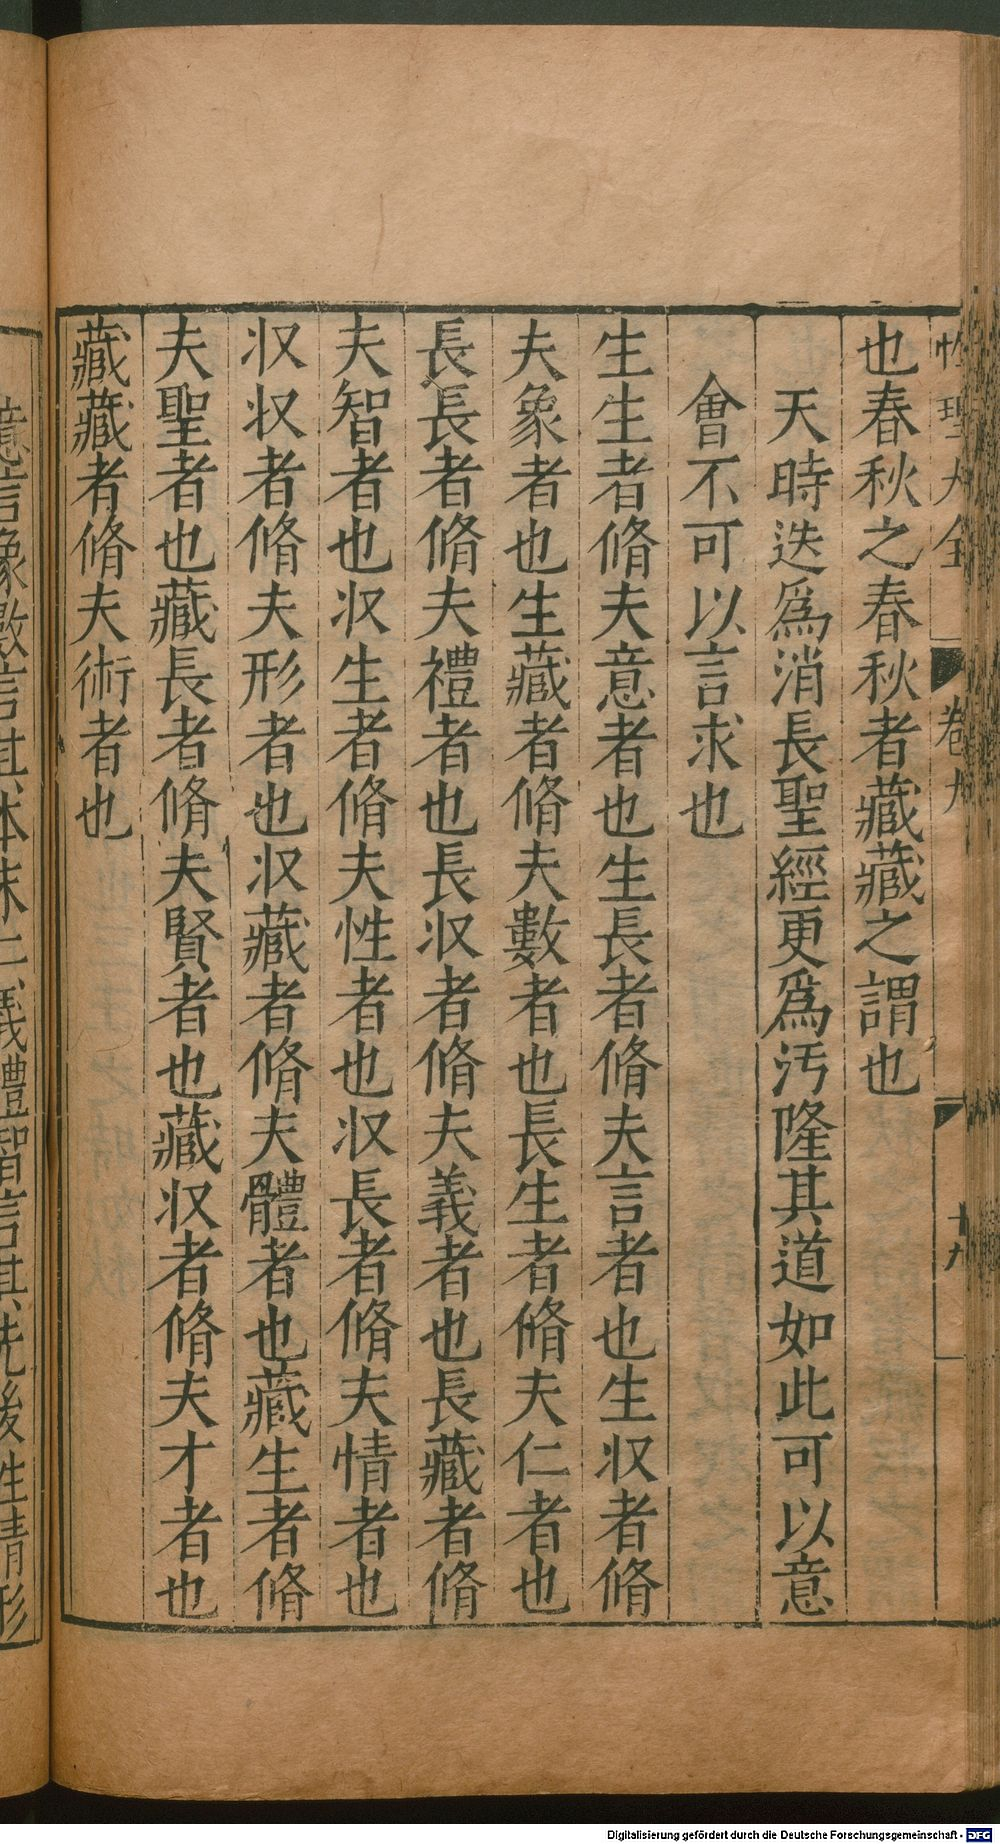 性理大全 卷九 十九
也春秋之春秋者藏藏之謂也
天時迭爲消長聖經更爲汚隆其道如此可以意
會不可以言求也
生生者脩夫意者也生長者脩夫言者也生収者脩
夫象者也生藏者脩夫數者也長生者脩夫仁者也
長長者脩夫禮者也長収者脩夫義者也長藏者脩
夫智者也収生者脩夫性者也収長者脩夫情者也
収収者脩夫形者也収藏者脩夫體者也藏生者脩
夫聖者也藏長者脩夫賢者也藏収者脩夫才者也
藏藏者脩夫術者也
意言象數言其本末仁義禮智言其先後性情形
Digitalisierung gefördert durch die Deutsche Forschungsgemeinschaft - DFG